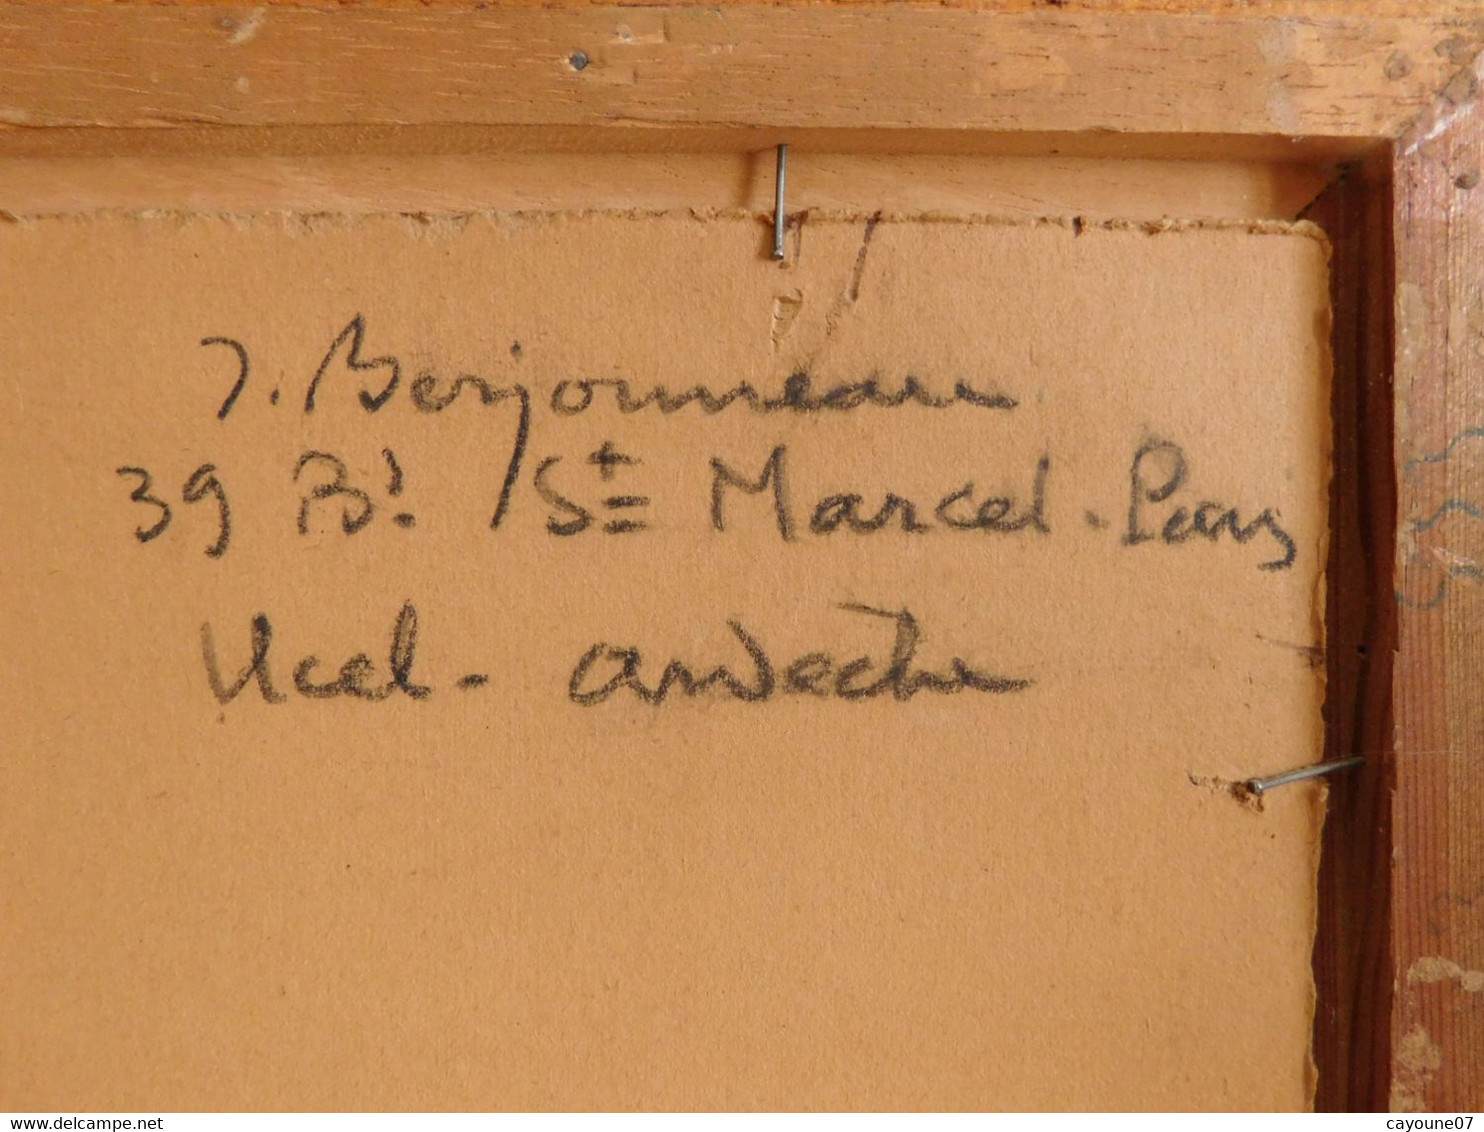 J. Berjonneau
39 Bd St Marcel - Paris
Ucel - Ardèche
delcampe.net
cayoune07